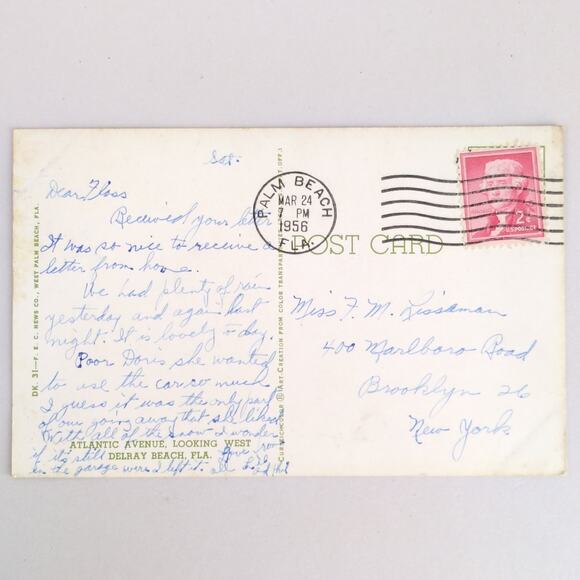 Sat.
Dear Floss
Recieved your letter
It was so nice to receive a
letter from home.
We had plenty of rain
yesterday and again last
night. It is lovely to-day.
Poor Doris she wanted
to use the car so much
I guess it was the only part
of our going away that she liked
With all of the snow I wonder
if it's still
in the garage were I left it. all
ATLANTIC AVENUE, LOOKING WEST
DELRAY BEACH, FLA.
DK. 31—F. E. C. NEWS CO., WEST PALM BEACH, FLA.
ART-CREATION FROM COLOR TRANSPARENCY
POST CARD
PALM BEACH
MAR 24
7 PM
1956
FLA.
2¢
U.S. POSTAGE
Miss F. M. Lissaman
400 Marlboro Road
Brooklyn 26
New York